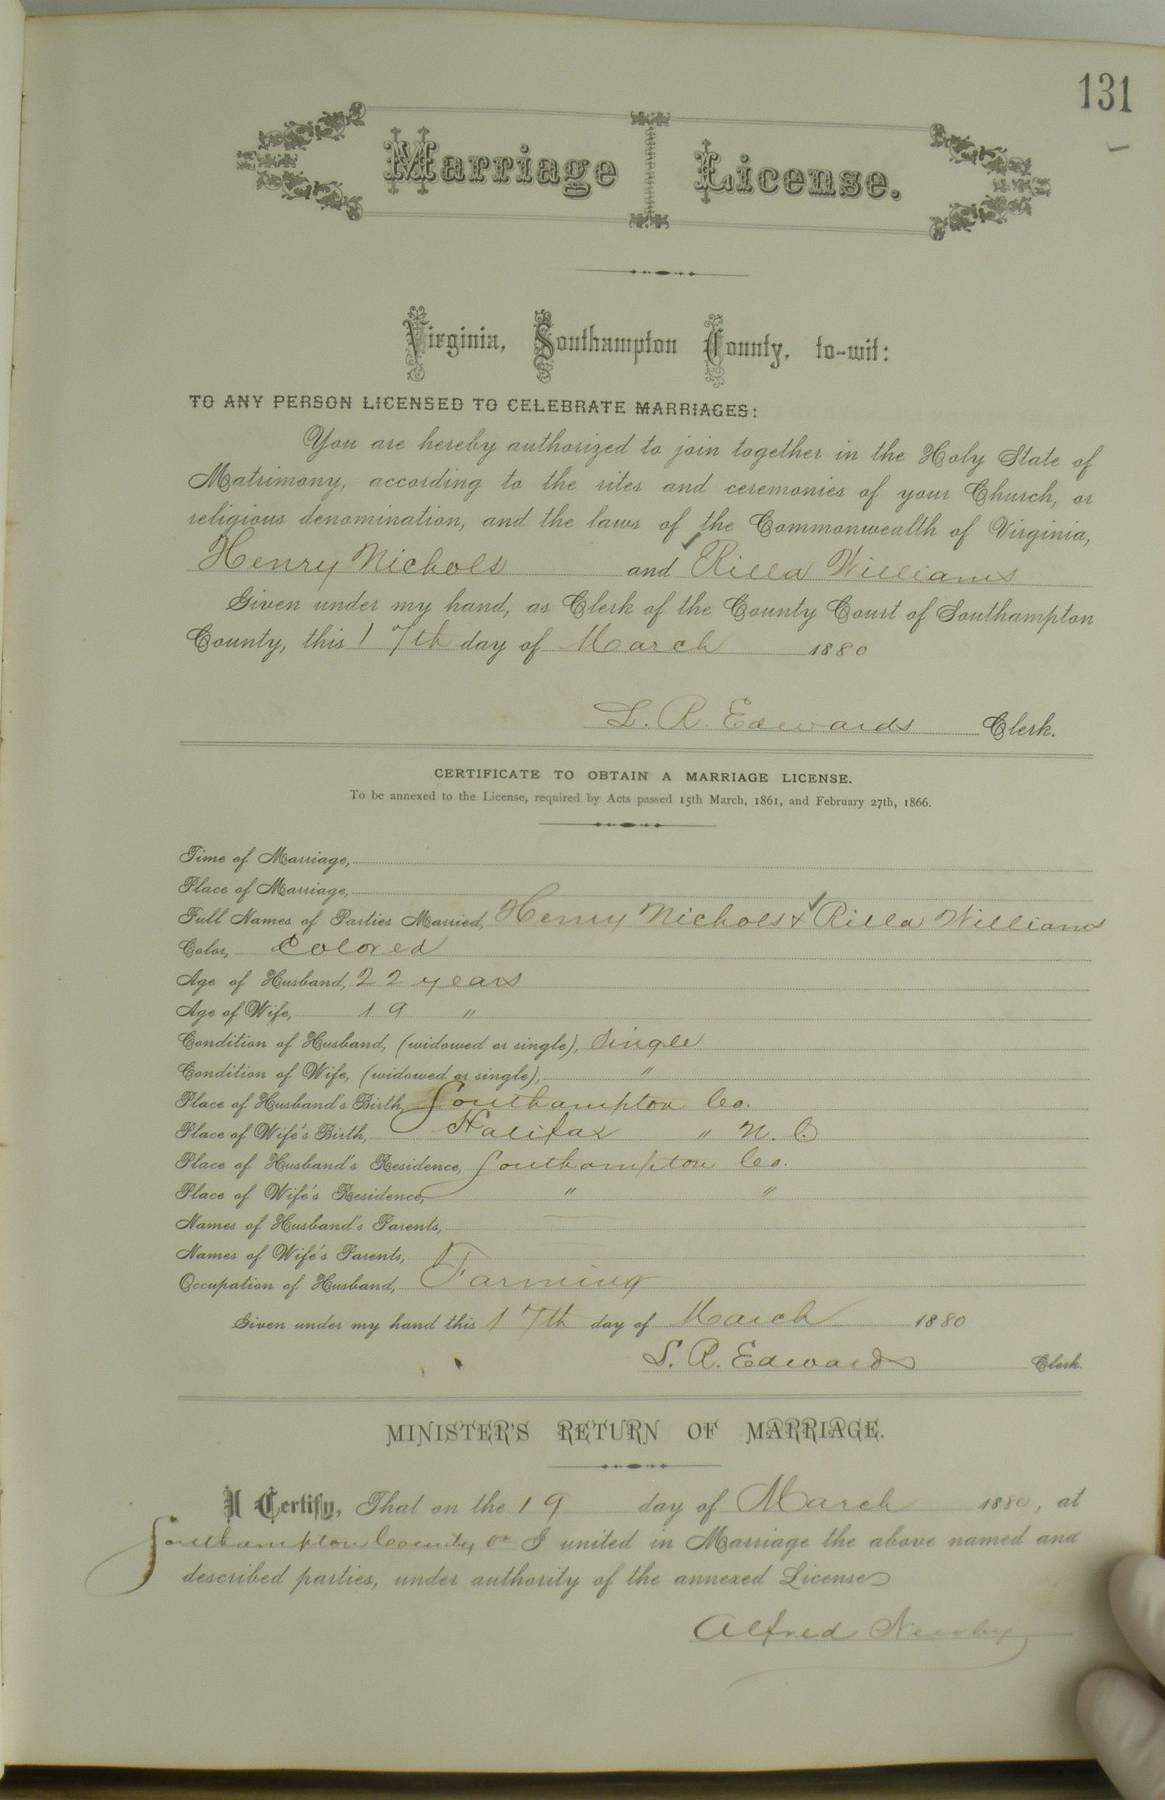 131
Marriage License.
Virginia, Southampton County, to-wit:
TO ANY PERSON LICENSED TO CELEBRATE MARRIAGES:
You are hereby authorized to join together in the Holy State of
Matrimony, according to the rites and ceremonies of your Church, or
religious denomination, and the laws of the Commonwealth of Virginia,
Henry Nichols and Rilla Williams
Given under my hand, as Clerk of the County Court of Southampton
County, this 17th day of March 1880
L. R. Edwards Clerk.
CERTIFICATE TO OBTAIN A MARRIAGE LICENSE.
To be annexed to the License, required by Acts passed 15th March, 1861, and February 27th, 1866.
Time of Marriage,
Place of Marriage,
Full Names of Parties Married, Henry Nichols & Rilla Williams
Color, Colored
Age of Husband, 22 years
Age of Wife, 19 "
Condition of Husband, (widowed or single), Single
Condition of Wife, (widowed or single), "
Place of Husband's Birth, Southampton Co.
Place of Wife's Birth, Halifax " N. C.
Place of Husband's Residence, Southampton Co.
Place of Wife's Residence, " "
Names of Husband's Parents,
Names of Wife's Parents,
Occupation of Husband, Farming
Given under my hand this 17th day of March 1880
L. R. Edwards Clerk.
MINISTER'S RETURN OF MARRIAGE.
I Certify, That on the 19 day of March 1880, at
Southampton County Va I united in Marriage the above named and
described parties, under authority of the annexed License
Alfred Newby